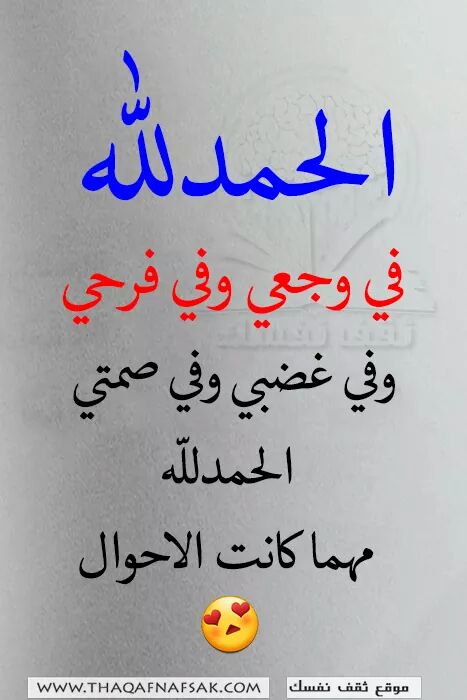 الحمدلله
في وجعي وفي فرحي
وفي غضبي وفي صمتي
الحمدلله
مهما كانت الاحوال
ثقف نفسك
WWW.THAQAFNAFSAK.COM موقع ثقف نفسك